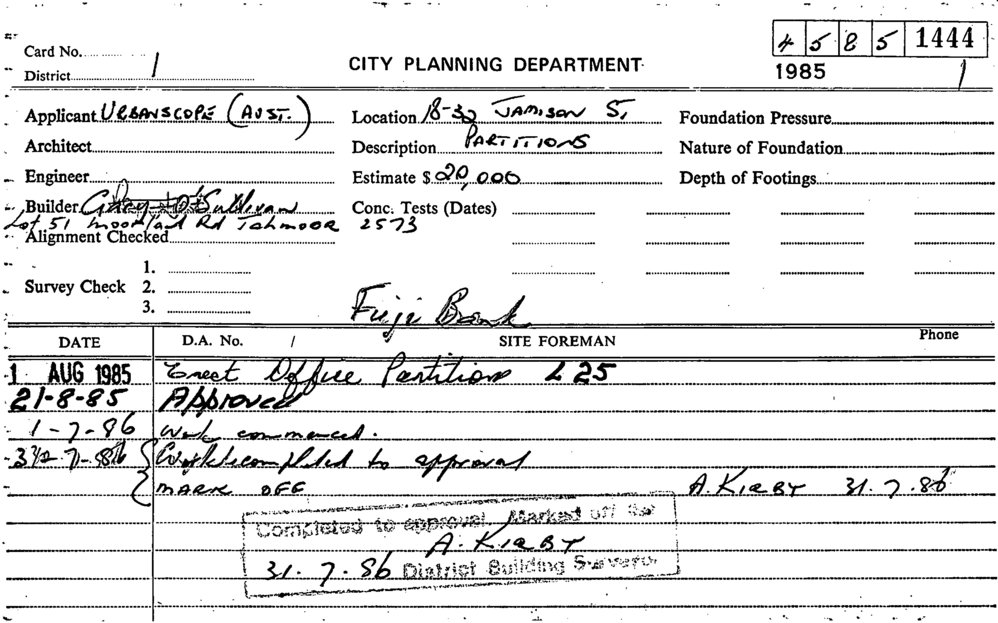 4 5 8 5 1444
Card No.
District 1
CITY PLANNING DEPARTMENT
1985 1
Applicant URBANSCOPE (AUST.)
Location 18-30 JAMISON St,
Foundation Pressure
Architect
Description PARTITIONS
Nature of Foundation
Engineer
Estimate $ 20,000
Depth of Footings
Builder O'Sullivan
Conc. Tests (Dates)
Lot 51 Moorland Rd Tahmoor 2573
Alignment Checked
1.
Survey Check 2.
3.
Fuji Bank
DATE D.A. No. / SITE FOREMAN Phone
1 AUG 1985 Erect Office Partitions L 25
21-8-85 Approved
1-7-86 Work commenced.
31-7-86 Work completed to approval
MARK OFF A. KIRBY 31.7.86
Completed to approval. Marked off
A. KIRBY
31.7.86 District Building Surveyor.